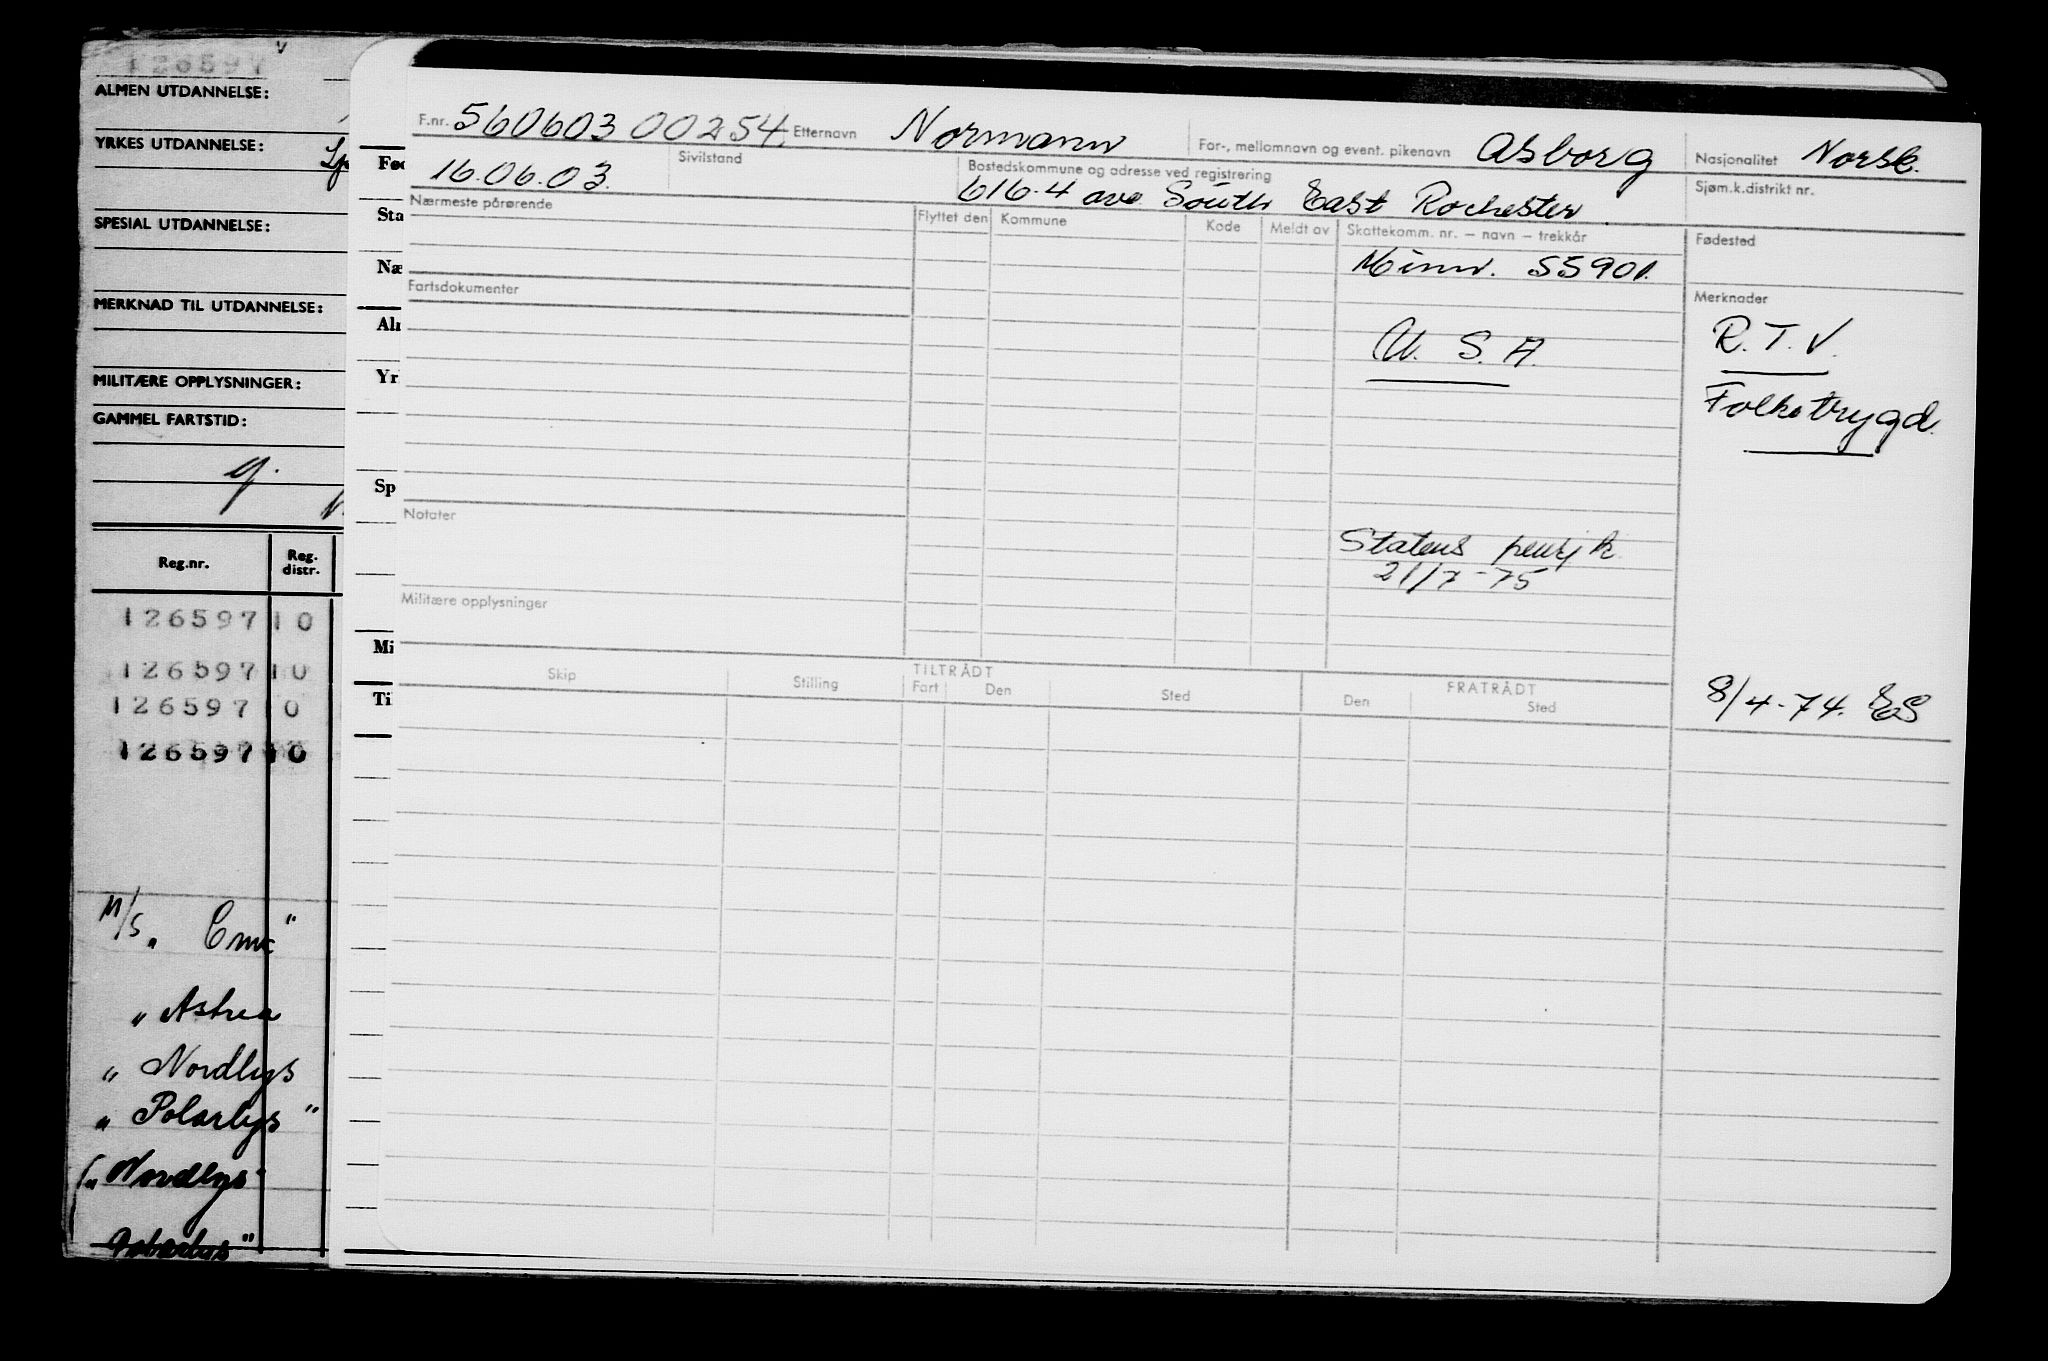 126597
ALMEN UTDANNELSE:
YRKES UTDANNELSE:
SPESIAL UTDANNELSE:
MERKNAD TIL UTDANNELSE:
MILITÆRE OPPLYSNINGER:
GAMMEL FARTSTID:
Reg.nr. Reg. distr.
126597 10
126597 10
126597 0
126597 10
M/S „
„ Astrea
„ Nordlys
„ Polarlys"
(„ Nordlys"
Polarlys"
Sta
Næ
Al
Yr
Sp
Mi
Ti
F.nr. 560603 00254. Etternavn Normann For-, mellomnavn og event. pikenavn Asborg Nasjonalitet Norsk.
16.06.03. Sivilstand Bostedskommune og adresse ved registrering Sjøm.k.distrikt nr.
616-4 ave South East Rochester
Nærmeste pårørende Flyttet den Kommune Kode Meldt av Skattekomm. nr. – navn – trekkår Fødested
Minn. 55901.
Fartsdokumenter Merknader
U. S. A. R.T.V.
Folketrygd.
Notater
Statens pensj k.
21/7-75
Militære opplysninger
8/4-74. ES
Skip Stilling TILTRÅDT FRATRÅDT
Fart Den Sted Den Sted